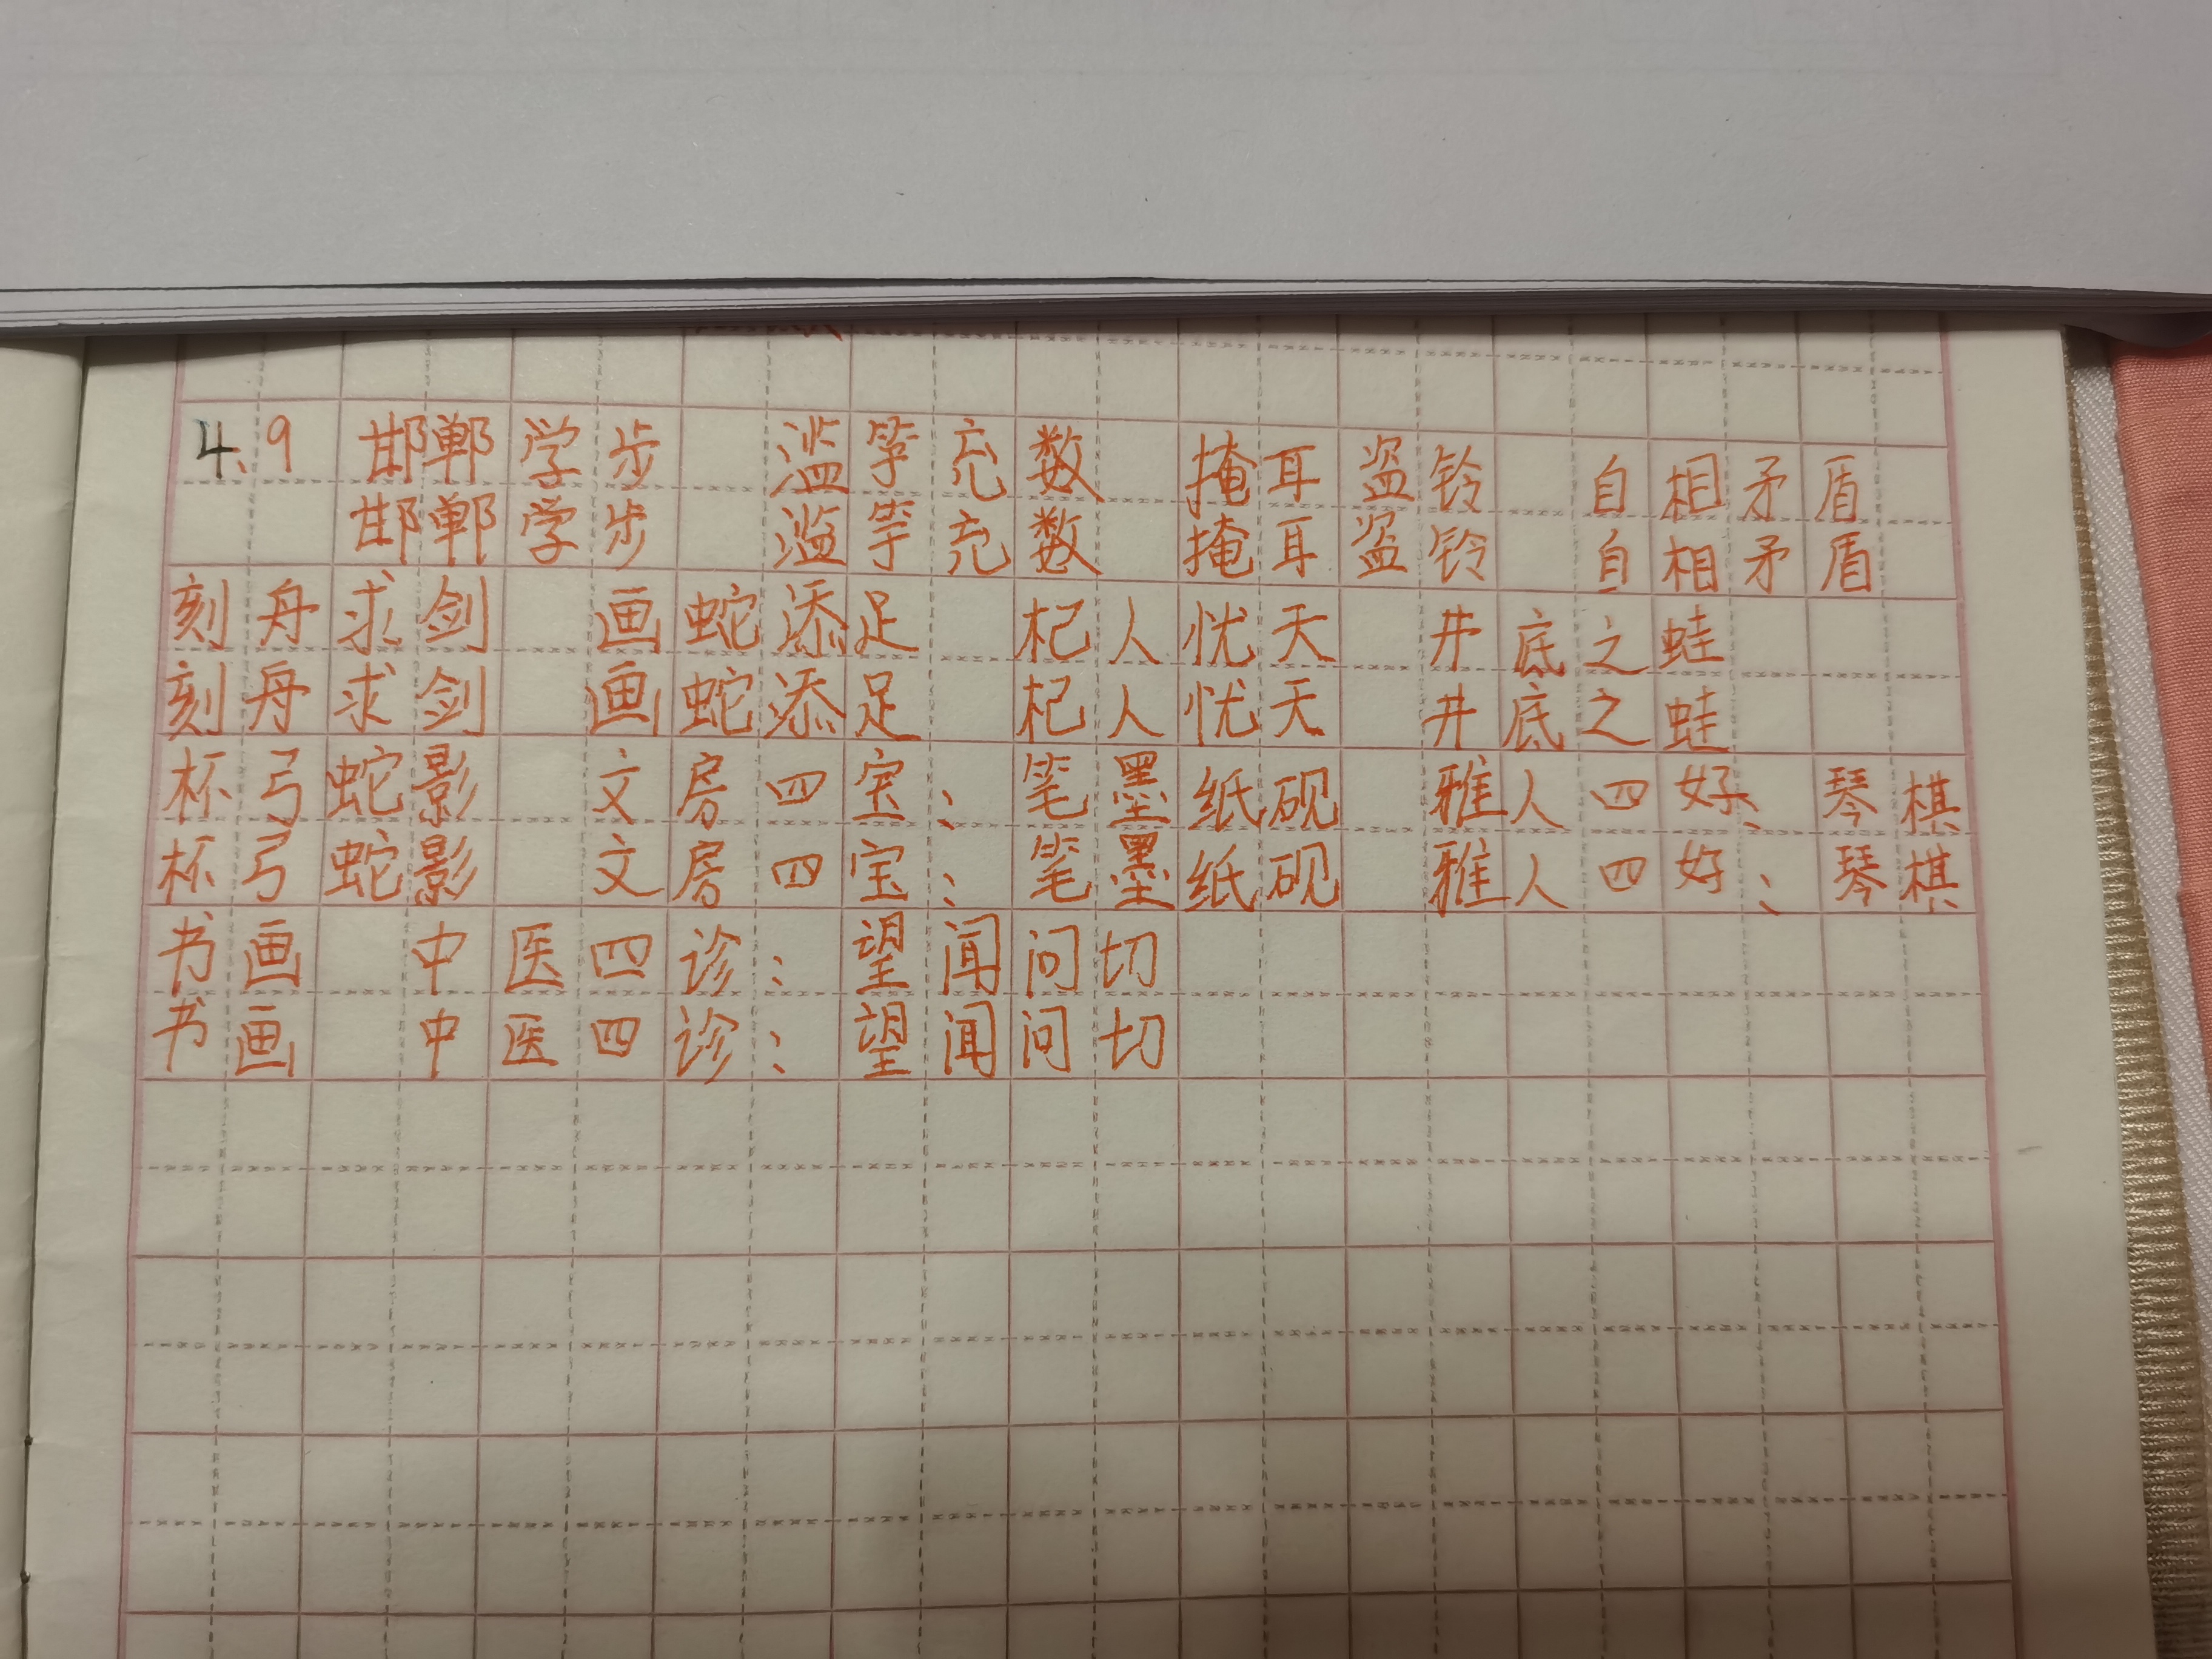 4.9 邯郸学步 滥竽充数 掩耳盗铃 自相矛盾
邯郸学步 滥竽充数 掩耳盗铃 自相矛盾
刻舟求剑 画蛇添足 杞人忧天 井底之蛙
刻舟求剑 画蛇添足 杞人忧天 井底之蛙
杯弓蛇影 文房四宝：笔墨纸砚 雅人四好：琴棋
杯弓蛇影 文房四宝：笔墨纸砚 雅人四好：琴棋
书画 中医四诊：望闻问切
书画 中医四诊：望闻问切